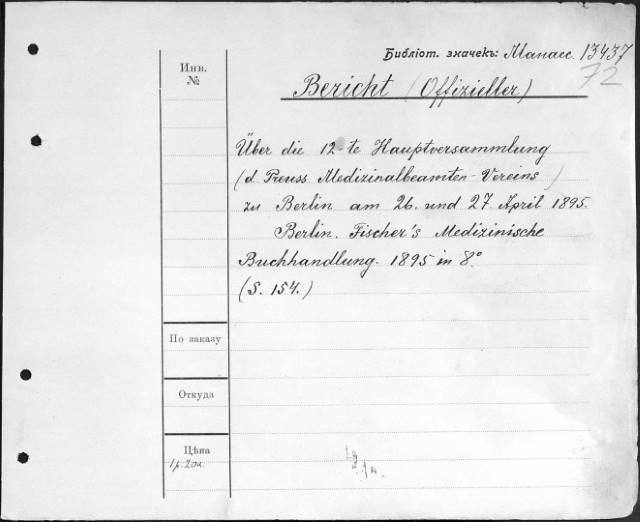 Библіот. значекъ: Манасс. 13437
72
Инв.
№
Bericht (Offizieller)
Über die 12-te Hauptversammlung
(d Preuss. Medizinalbeamten-Vereins)
zu Berlin am 26. und 27 April 1895.
Berlin. Fischer's Medizinische
Buchhandlung. 1895 in 8°.
(S. 154.)
По заказу
Откуда
Цѣна